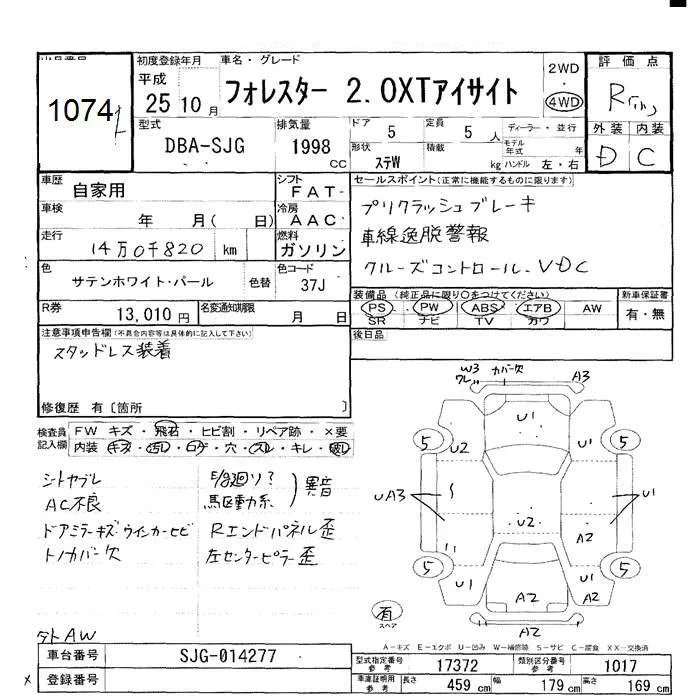 初度登録年月 車名・グレード 評価点
1074
平成 25 10月 フォレスター 2.0XTアイサイト 2WD 4WD
R
外装 内装
D C
型式 排気量 ドア 定員 ディーラー・並行
DBA-SJG 1998 cc 5 5人 モデル年式 年
形状 積載
ステW kg ハンドル 左・右
車歴 自家用 シフト FAT- セールスポイント(正常に機能するものに限ります)
プリクラッシュブレーキ
車検 年 月( 日) 冷房 AAC
車線逸脱警報
走行 14万0千820 km 燃料 ガソリン
クルーズコントロール VDC
色 サテンホワイト・パール 色替 色コード 37J
装備品(純正品に限り○をつけてください) 新車保証書
PS PW ABS エアB AW 有・無
SR ナビ TV カワ
R券 13,010円 名変通知期限 月 日
後日品
注意事項申告欄(不具合内容等は具体的に記入して下さい)
スタッドレス装着
修復歴 有〔箇所 〕
検査員記入欄 FW キズ・飛石・ヒビ割・リペア跡・×要
内装 キズ・汚レ・コゲ・穴・スレ・キレ・破レ
シトヤブレ
AC不良
異音
駆動系
ドアミラーキズ ウインカーヒビ Rエンドパネル歪
トノカバー欠 左センターピラー歪
W3 カバー欠 A3
ワレ
U1
5 U2 5
UA3 U1
U2 A2
5 U1 A2 U1 5
A2
有
スペア
AW
A-キズ E-エクボ U-凹み W-補修跡 S-サビ C-腐食 XX-交換済
車台番号 SJG-014277
登録番号
型式指定番号 参考 17372 類別区分番号 参考 1017
車庫証明用 参考 長さ 459 cm 幅 179 cm 高さ 169 cm